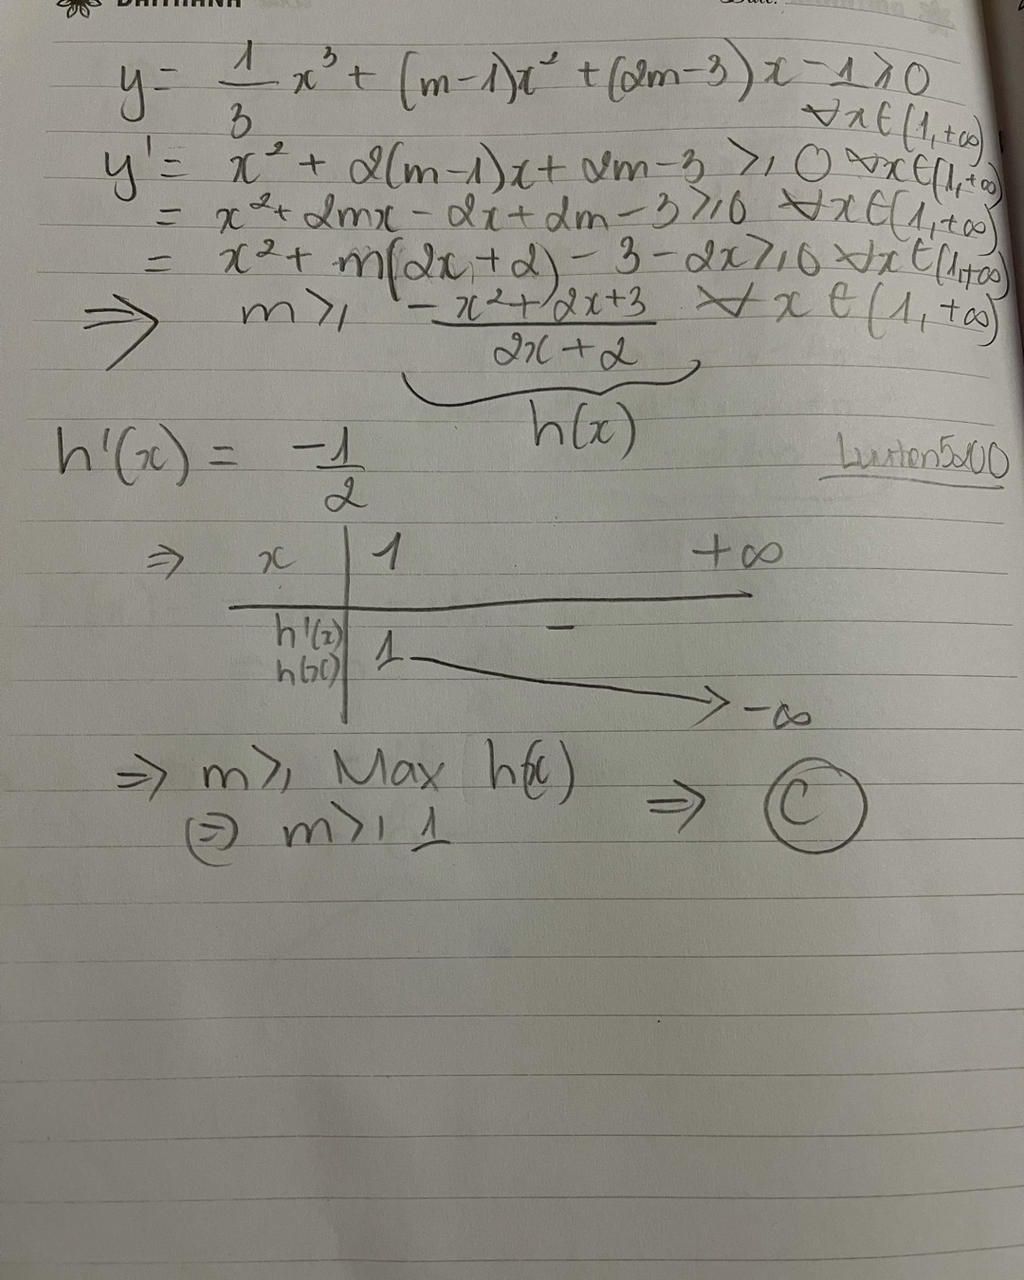 y = 1/3 x³ + (m-1)x² + (2m-3)x - 1 ≥ 0
∀x ∈ (1, +∞)
y' = x² + 2(m-1)x + 2m - 3 ≥ 0 ∀x ∈ (1, +∞)
= x² + 2mx - 2x + 2m - 3 ≥ 0 ∀x ∈ (1, +∞)
= x² + m(2x + 2) - 3 - 2x ≥ 0 ∀x ∈ (1, +∞)
⇒ m ≥ (-x² + 2x + 3)/(2x + 2) ∀x ∈ (1, +∞)
h(x)
h'(x) = -1/2
⇒ x 1 +∞
h'(x) -
h(x) 1 -∞
⇒ m ≥ Max h(x) ⇒ C
⇔ m ≥ 1